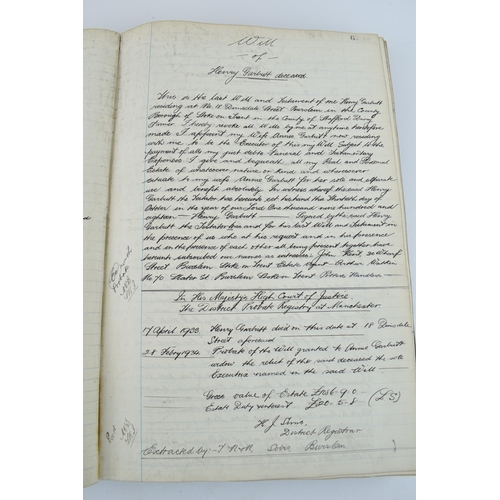 Will
of
Henry Garbutt deceased
This is the last Will and Testament of me Henry Garbutt
residing at No 18 Dunsdale Street Burslem in the County
Borough of Stoke on Trent in the County of Stafford
I hereby revoke all Wills by me at anytime heretofore
made I appoint my Wife Annie Garbutt now residing
with me to be the Executor of this my Will Subject to the
payment of all my just debts Funeral and Testamentary
Expenses I give and bequeath all my Real and Personal
Estate of whatsoever nature or kind and wheresoever
situate to my wife Annie Garbutt for her sole and
use and benefit absolutely In witness whereof the said Henry
Garbutt the Testator has hereunto set his hand this Thirtieth day of
October in the year of our Lord One thousand nine hundred and
eighteen - Henry Garbutt - Signed by the said Henry
Garbutt the Testator as and for his last Will and Testament in
the presence of us who at his request and in his presence
and in the presence of each other all being present together have
hereunto subscribed our names as witnesses John
Street Burslem Stoke on Trent Estate Agent Arthur
No 70 Street Burslem Stoke on Trent
In His Majesty's High Court of Justice
The District Probate Registry at Manchester
17 April 1933. Henry Garbutt died on this date at 18 Dunsdale
Street aforesaid
28 Febry 1934. Probate of the Will granted to Annie Garbutt
widow the relict of the said deceased the sole
Executrix named in the said Will
Gross value of Estate £1056-9-0
Estate Duty & interest £20-5-8 (LS)
H J
District Registrar
Extracted by Burslem